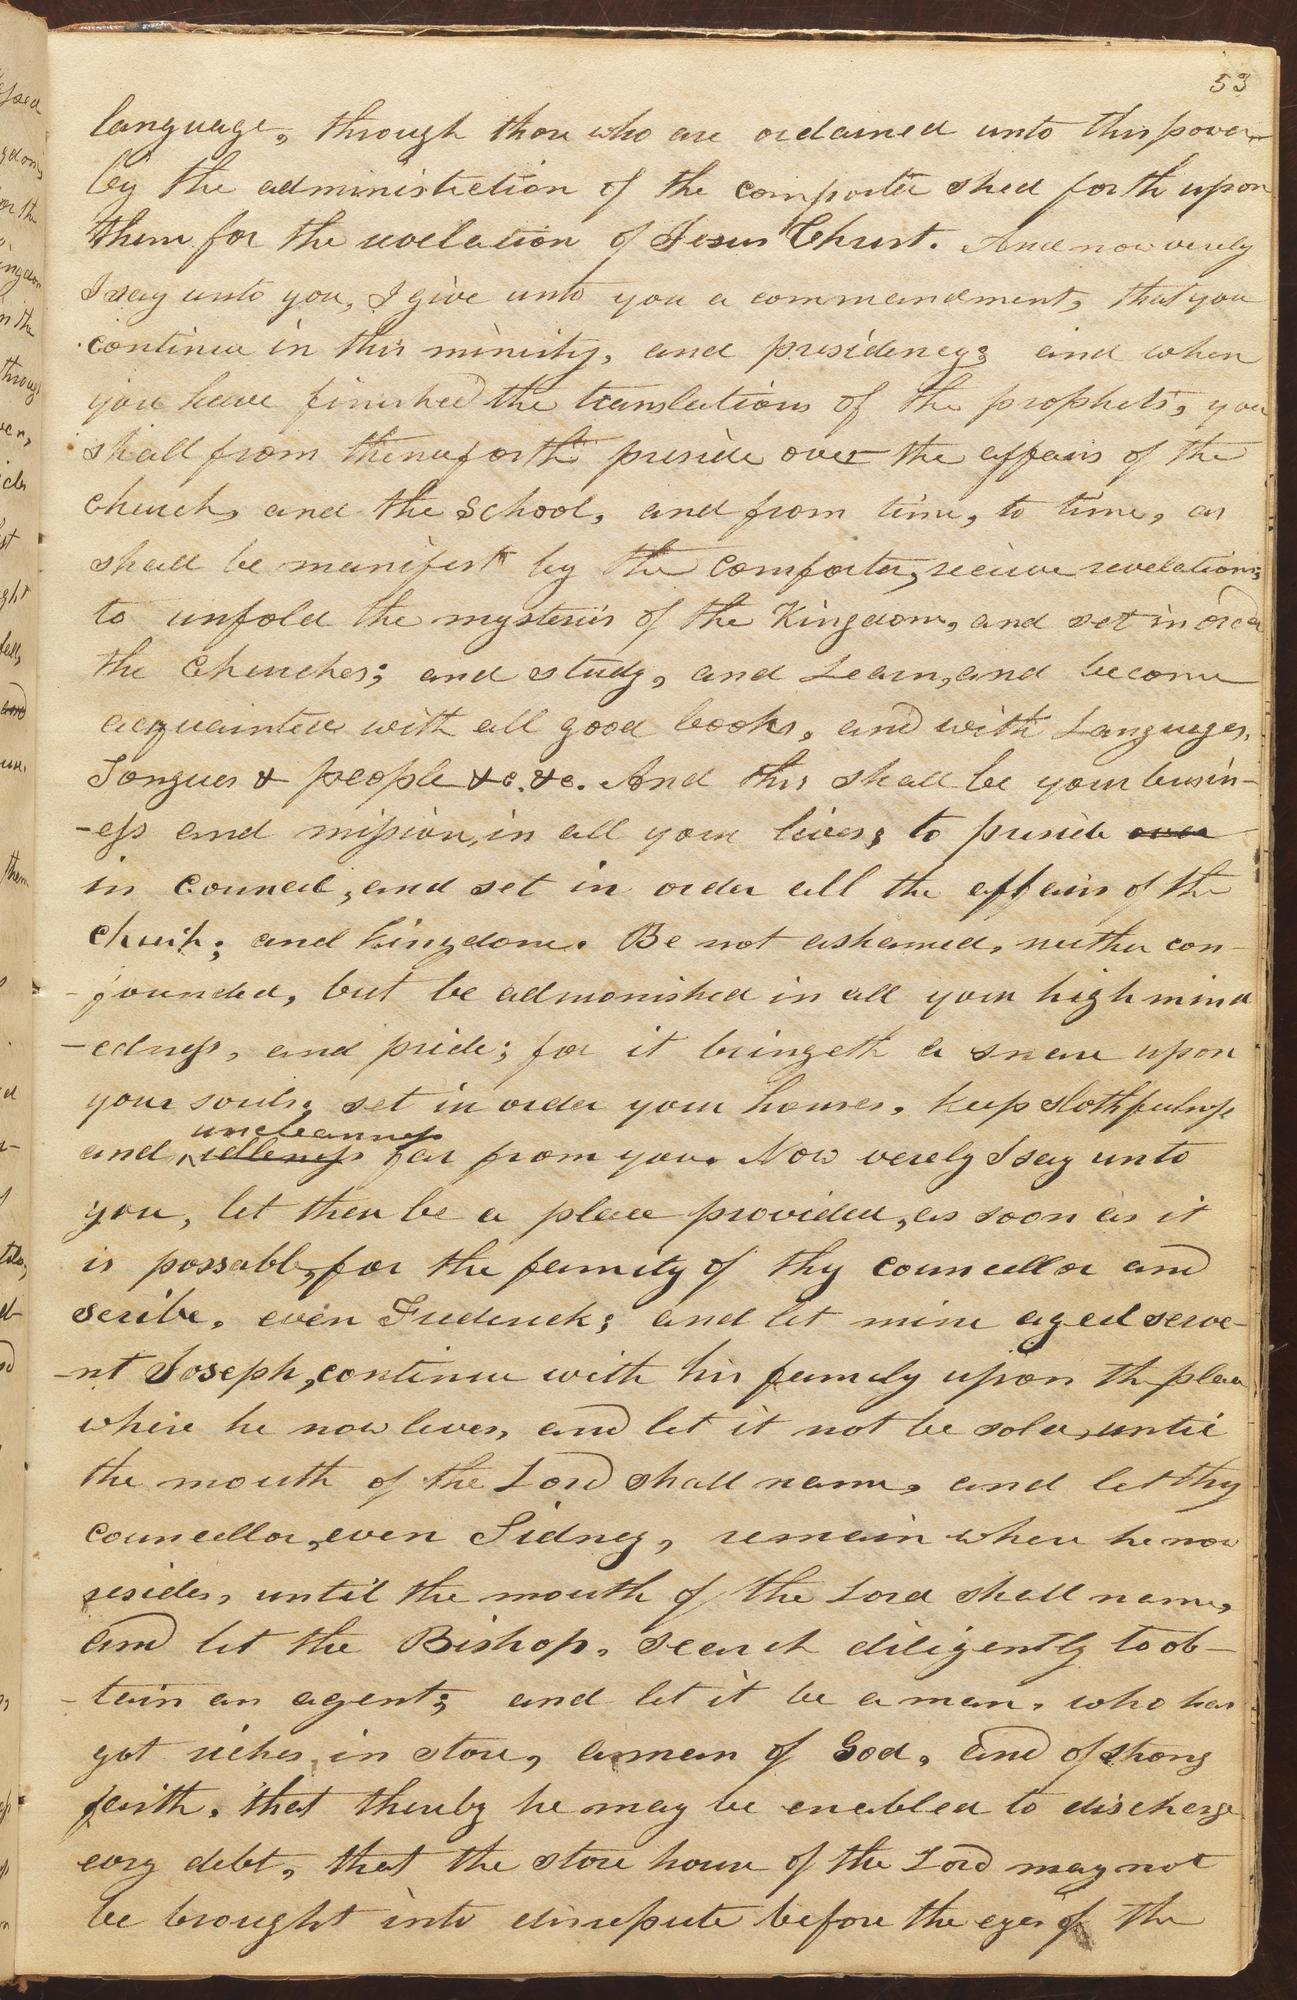 53
language, through those who are ordained unto this power
by the administretion of the comporter shed forth upon
them for the revelation of Jesus Christ. And now verely
I say unto you, I give unto you a commandment, that you
continue in this minisity, and presidency; and when
you have finished the translations of the prophets, you
shall from thenceforth preside over the affairs of the
church, and the School, and from time, to time, as
shall be manifest by the comforter, recieve revelations;
to unfold the mysteries of the Kingdom, and set in order
the Churches; and study, and Learn, and become
acquainted with all good books, and with Languages,
Tongues & people &c. &c. And this shall be your busin-
-ess and mission, in all your lives; to preside over
in Council, and set in order all the affairs of the
Church; and kingdom. Be not ashamed, neither con-
-founded, but be admonished in all your high mind
-edness, and pride; for it bringeth a snare upon
your souls; set in order your houses, keep slothfulness
uncleanness
and idleness far from you. Now verely I say unto
you, let there be a place provided, as soon as it
is possable, for the family of thy councellor and
scribe, even Frederick; and let mine aged serve-
-nt Joseph, continue with his family upon the place
where he now lives, and let it not be sold, until
the mouth of the Lord shall name, and let thy
councellor, even Sidney, remain where he now
resides, until the mouth of the Lord shall name,
and let the Bishop, search diligently to ob-
-tain an agent; and let it be a man, who has
got riches in store, a man of God, and of strong
faith, that thereby he may be enabled to discharge
evry debt, that the store house of the Lord may not
be brought into disrepute before the eyes of the